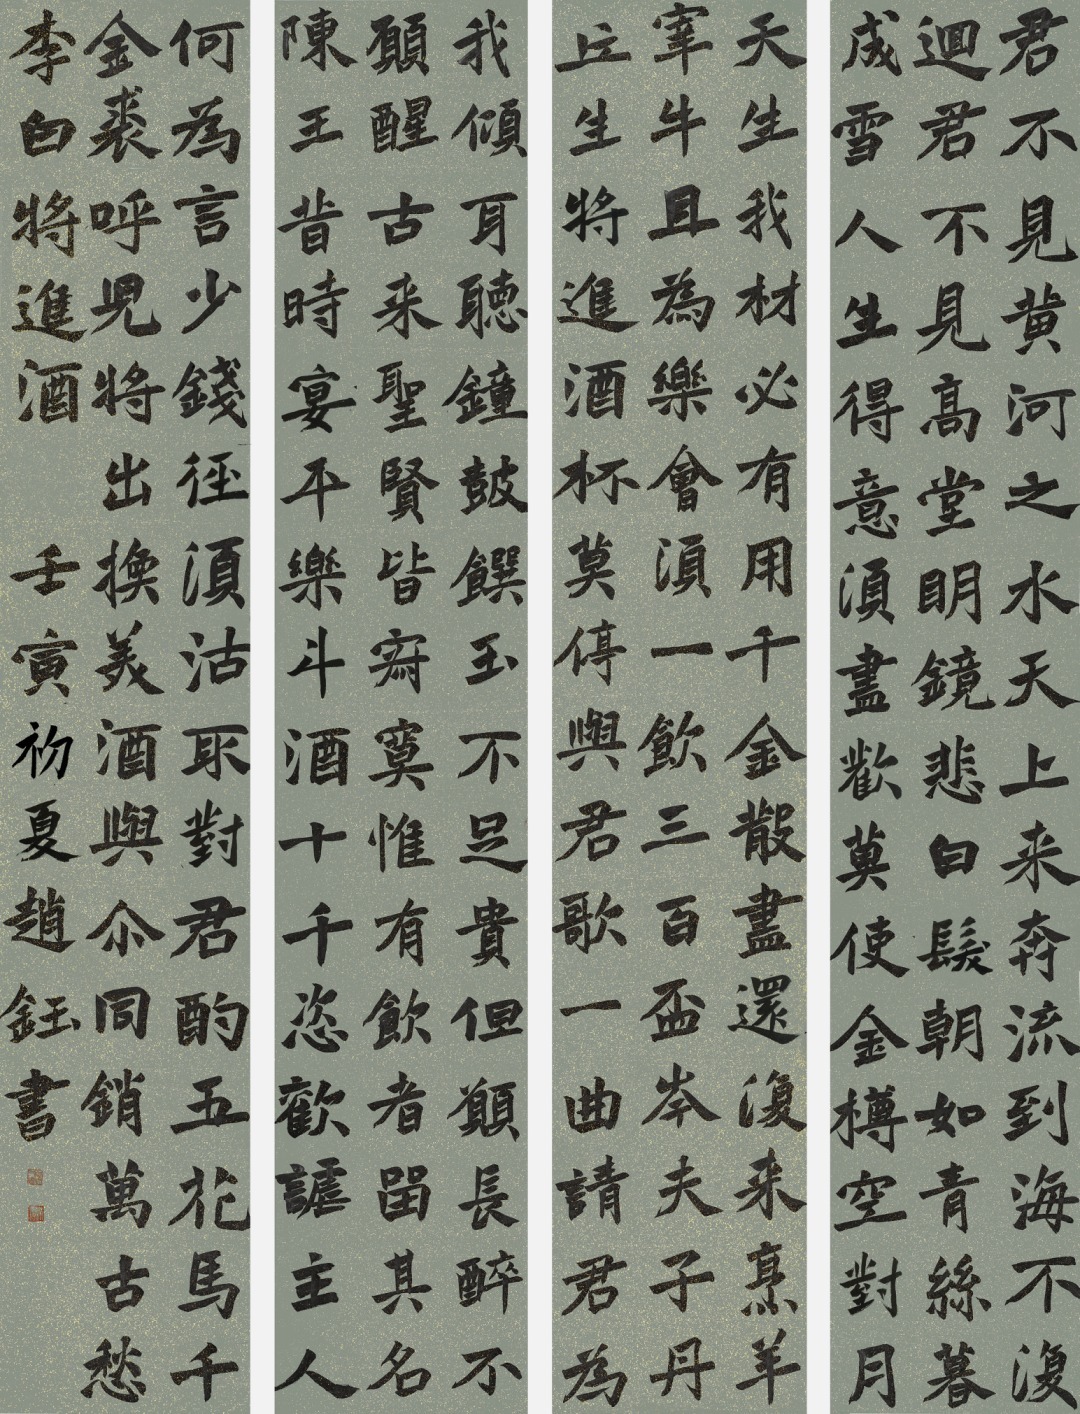 君不見黄河之水天上来奔流到海不復
迴君不見高堂明鏡悲白髮朝如青絲暮
成雪人生得意湏盡歡莫使金樽空對月
天生我材必有用千金散盡還復来烹羊
宰牛且為樂會湏一飲三百盃岑夫子丹
丘生將進酒杯莫停與君歌一曲請君為
我傾耳聽鐘鼓饌玉不足貴但願長醉不
願醒古来聖賢皆寂寞惟有飲者留其名
陳王昔時宴平樂斗酒十千恣歡謔主人
何為言少錢徑湏沽取對君酌五花馬千
金裘呼兒將出換美酒與尒同銷萬古愁
李白將進酒 壬寅初夏趙鈺書